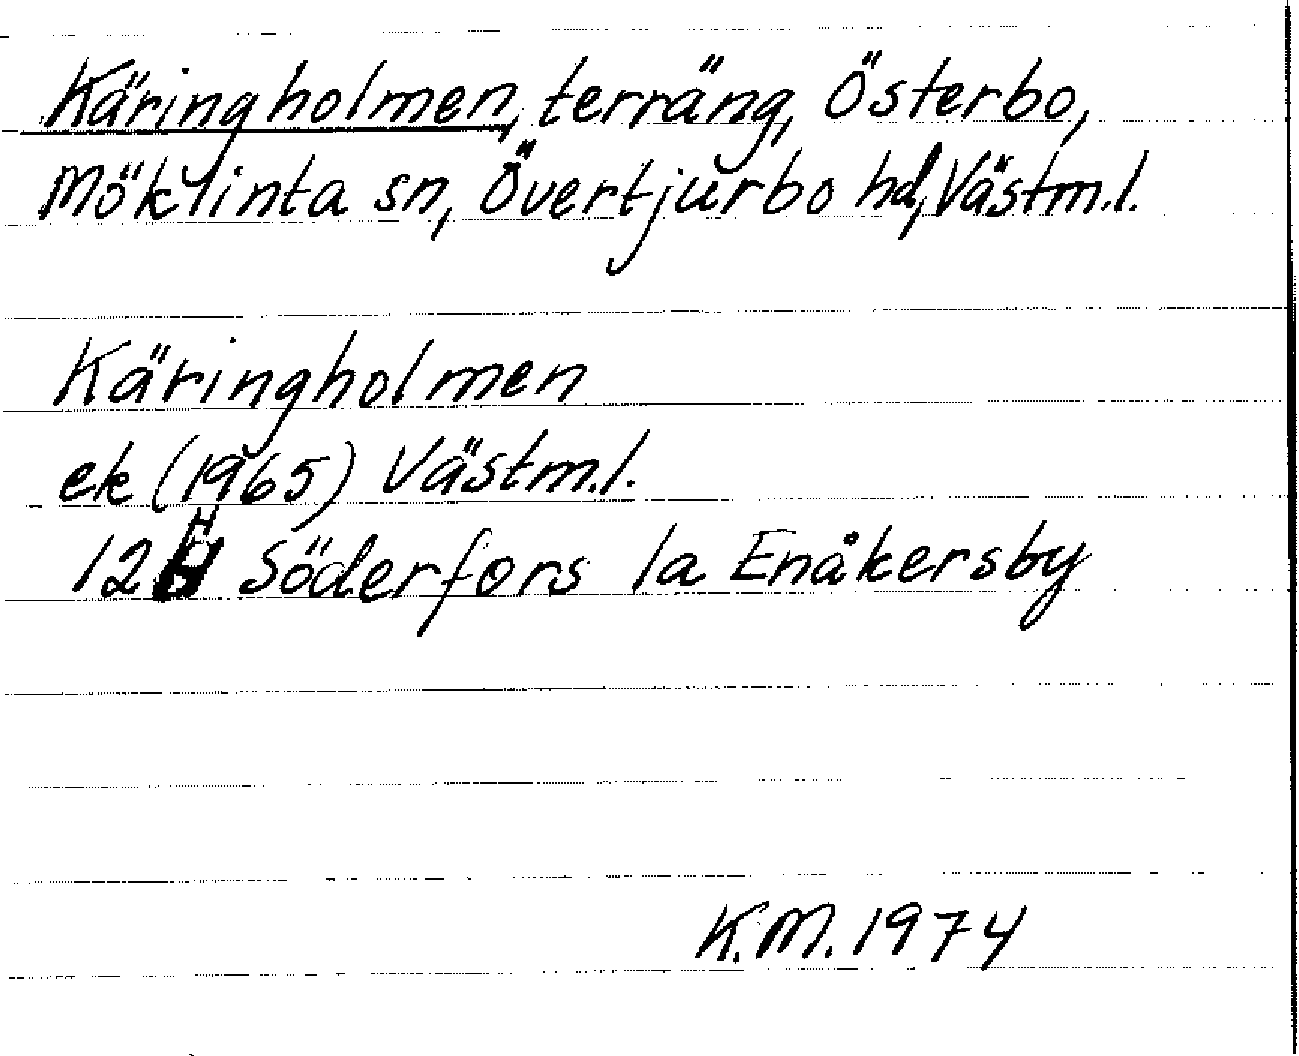 Käringholmen, terräng, Österbo,
Möklinta sn, Övertjurbo hd, Västm.l.
Käringholmen
ek (1965) Västm.l.
12H Söderfors 1a Enåkersby
K.M. 1974